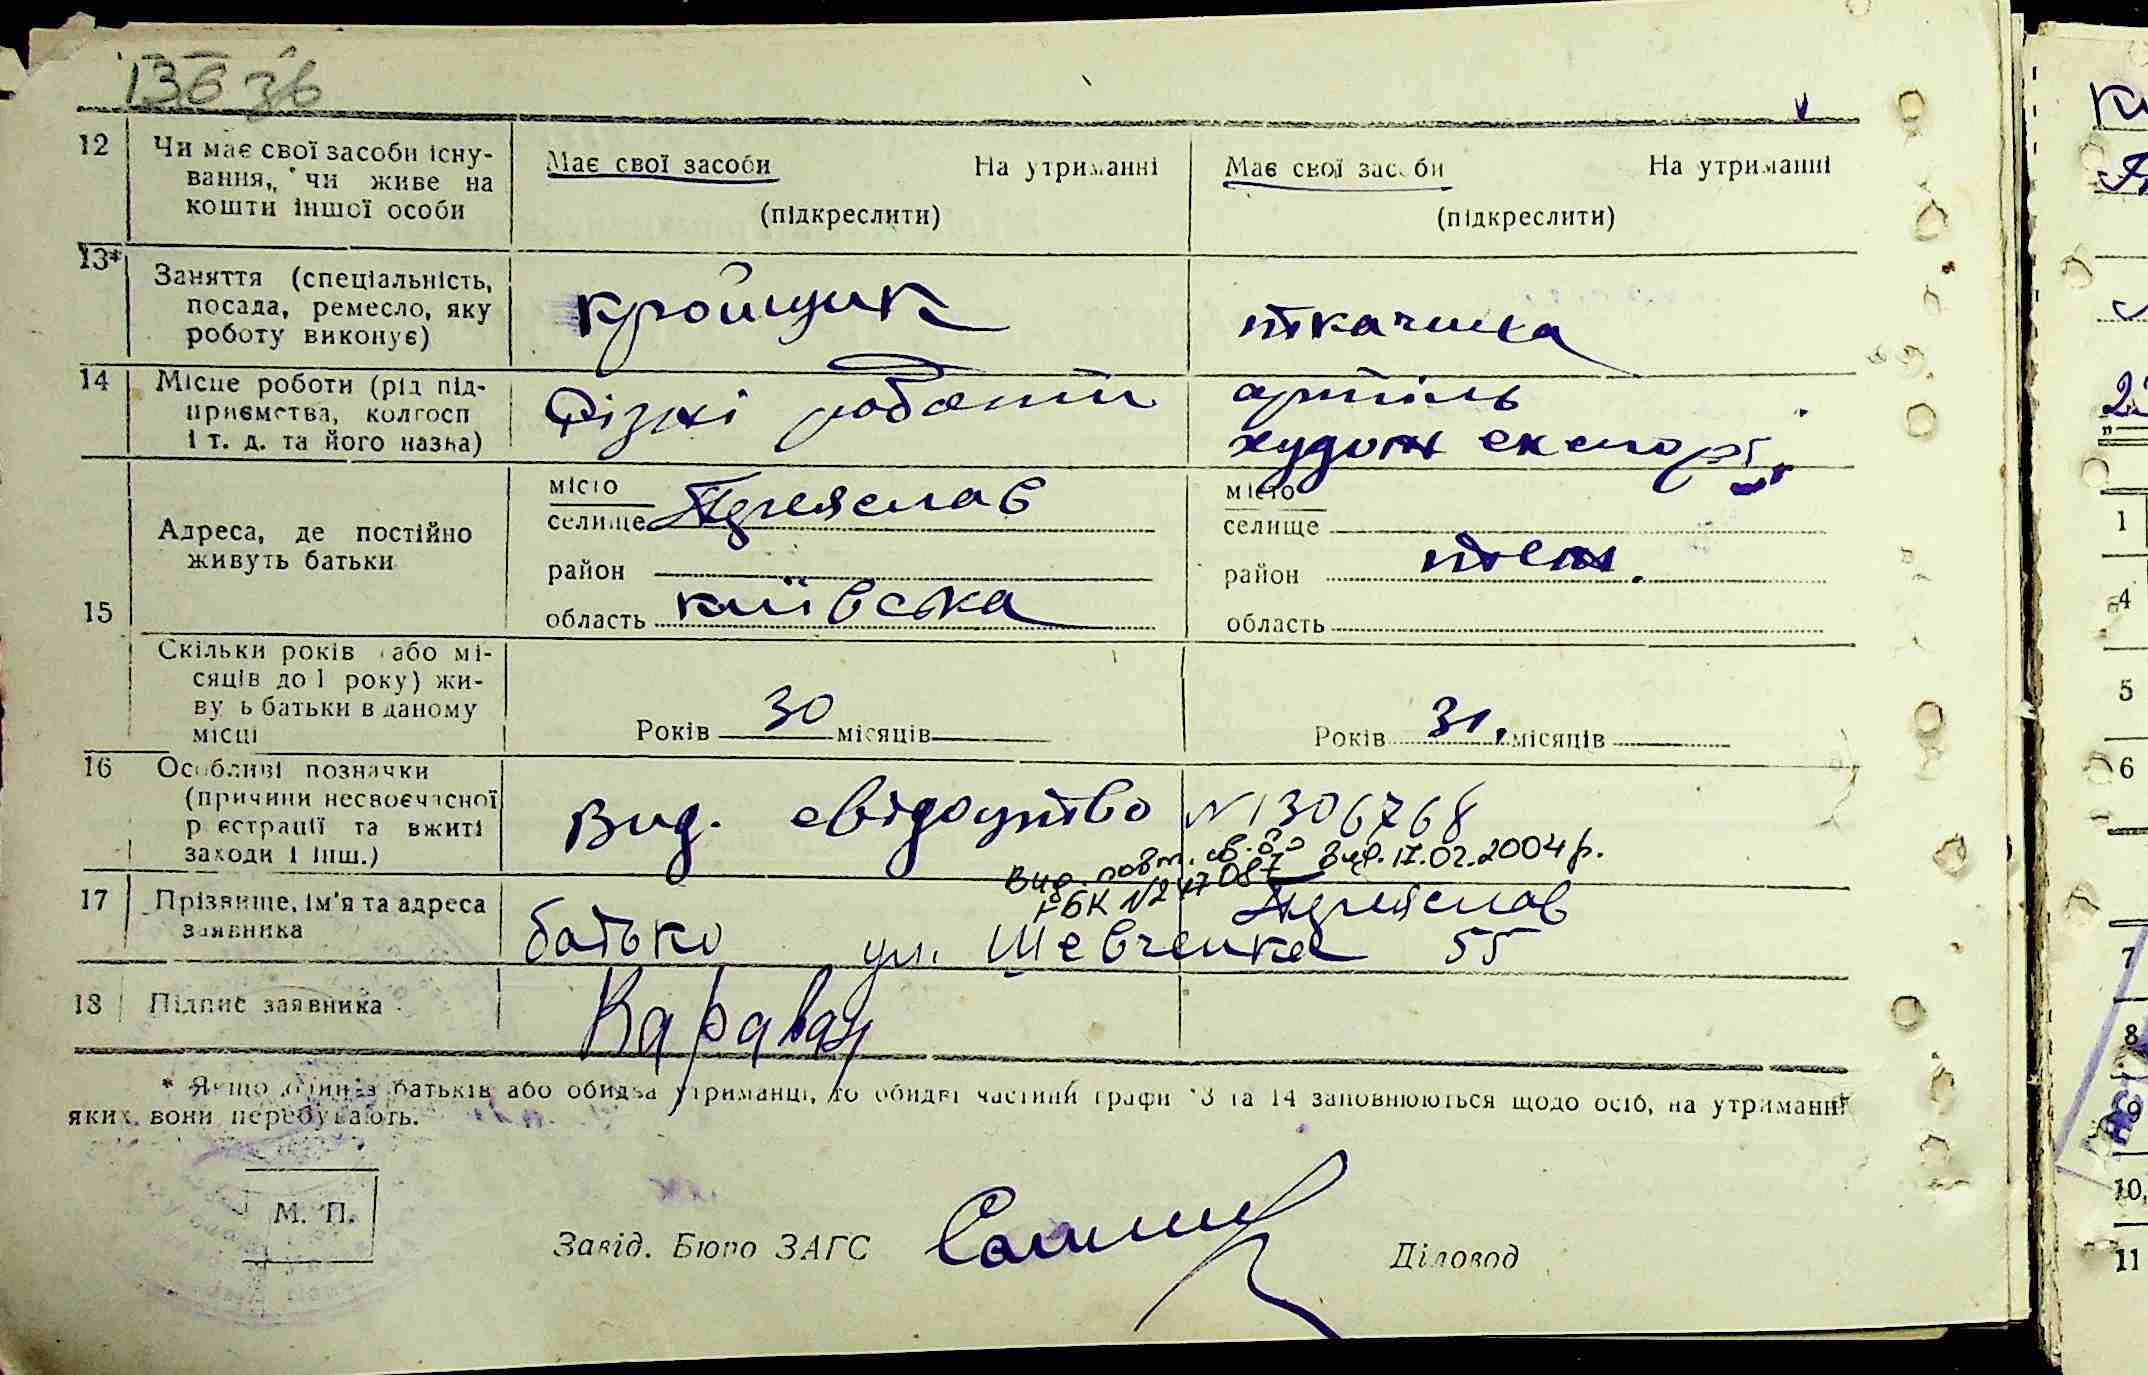 136 зв
12 Чи має свої засоби існу-
вання, чи живе на
кошти іншої особи
Має свої засоби На утриманні
(підкреслити)
Має свої засоби На утриманні
(підкреслити)
13* Заняття (спеціальність,
посада, ремесло, яку
роботу виконує)
кройщик
ткачиха
14 Місце роботи (рід під-
приємства, колгосп
і т. д. та його назва)
Різні роботи
артіль
худож експорт
15 Адреса, де постійно
живуть батьки
місто
селище Переяслав
район
область київська
місто
селище
район теж.
область
Скільки років або мі-
сяців до 1 року) жи-
вуть батьки в даному
місці
Років 30 місяців
Років 31, місяців
16 Особливі позначки
(причини несвоєчасної
реєстрації та вжиті
заходи і інш.)
Вид. свідоцтво № 1306768
Вид. повт. св. вид. 17.02.2004 р.
ІБК № 247087
17 Прізвище, ім'я та адреса
заявника
Переяслав
батько ул. Шевченка 55
18 Підпис заявника
Каравай
* Якщо один з батьків або обидва утриманці, то обидві частини графи 13 та 14 заповнюються щодо осіб, на утриманні
яких вони перебувають.
М. П.
Завід. Бюро ЗАГС
Діловод
1
4
5
6
7
8
9
10,
11